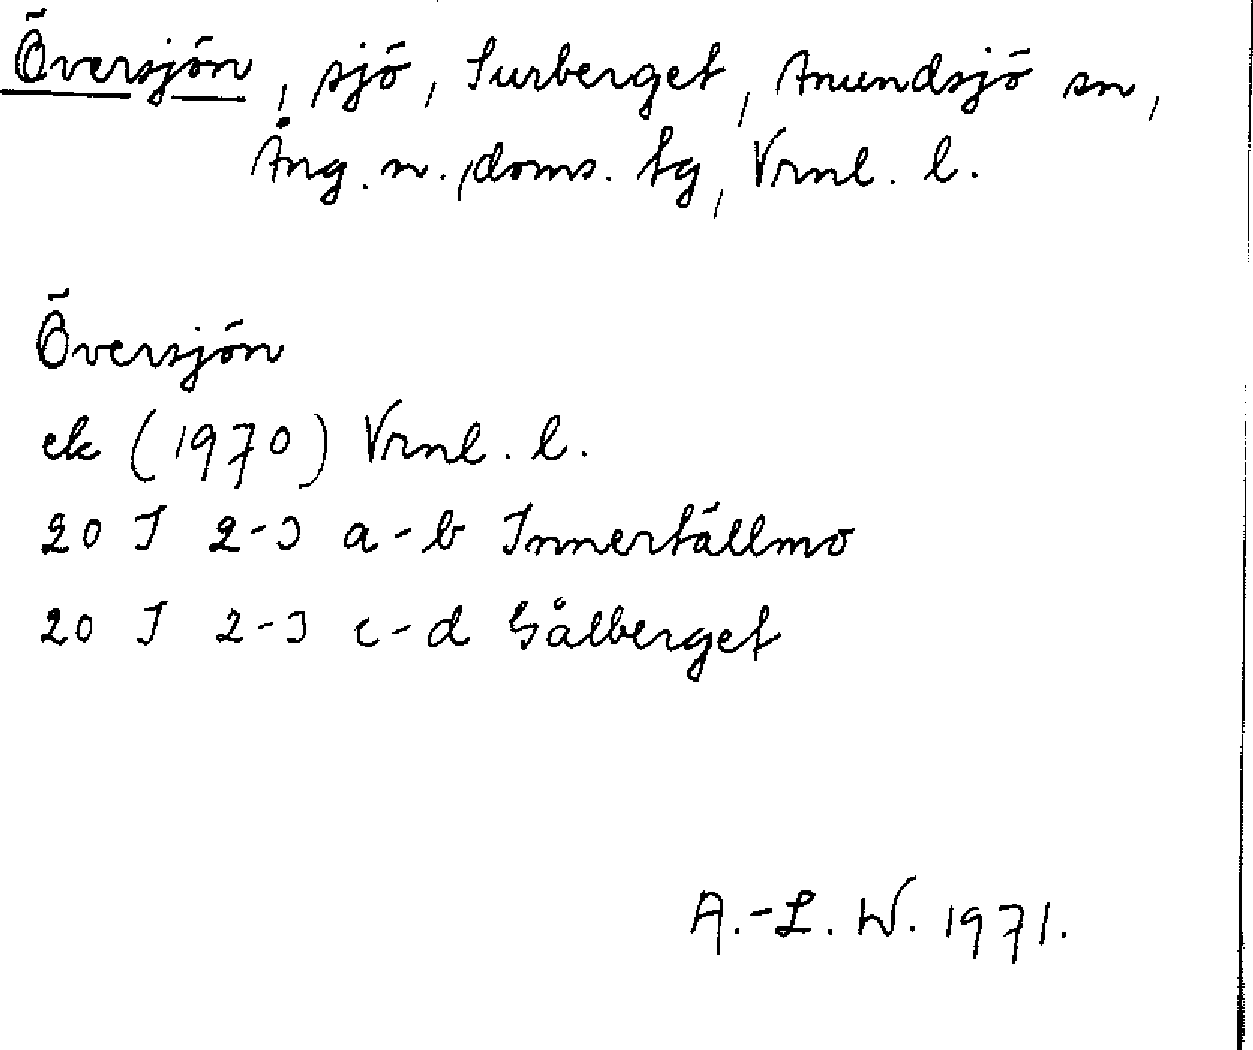 Översjön, sjö, Surberget, Anundsjö sn,
Ång. n. doms. tg, Vrnl. l.
Översjön
ek (1970) Vrnl. l.
20 I 2-3 a-b Innertällmo
20 I 2-3 c-d Gålberget
A.-L. W. 1971.